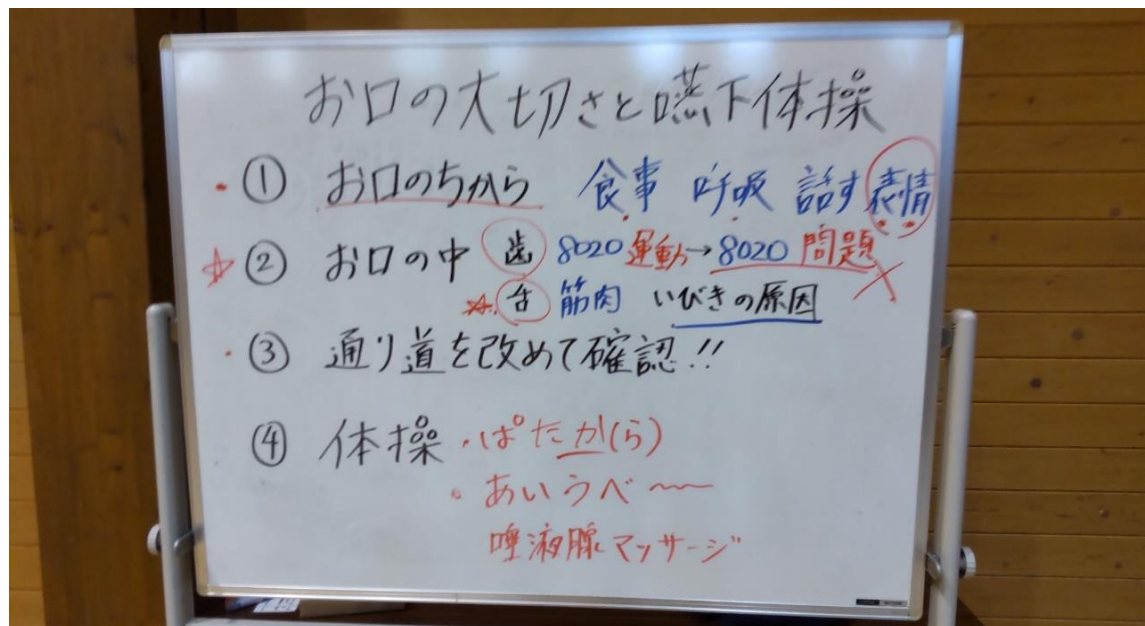 お口の大切さと嚥下体操
・① お口のちから 食事 呼吸 話す 表情
☆② お口の中 歯 8020運動→8020問題
☆舌 筋肉 いびきの原因
・③ 通り道を改めて確認!!
④ 体操 ・ぱたか(ら)
・あいうべ〜〜
唾液腺マッサージ